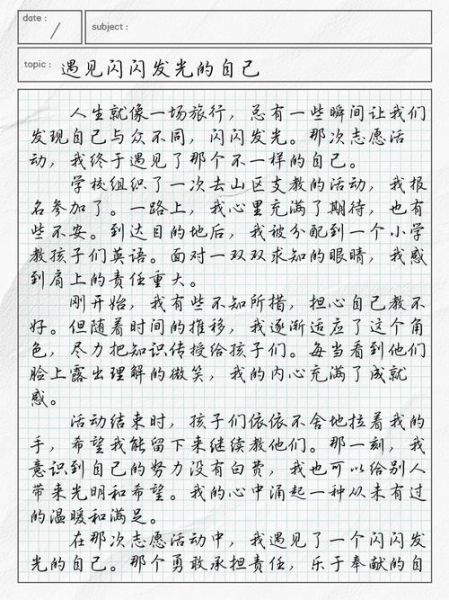 date：
subject：
topic： 遇见闪闪发光的自己
人生就像一场旅行，总有一些瞬间让我们
发现自己与众不同，闪闪发光。那次志愿活
动，我终于遇见了那个不一样的自己。
学校组织了一次去山区支教的活动，我报
名参加了。一路上，我心里充满了期待，也有
些不安。到达目的地后，我被分配到一个小学
教孩子们英语。面对一双双求知的眼睛，我感
到肩上的责任重大。
刚开始，我有些不知所措，担心自己教不
好。但随着时间的推移，我逐渐适应了这个角
色，尽力把知识传授给孩子们。每当看到他们
脸上露出理解的微笑，我的内心充满了成就
感。
活动结束时，孩子们依依不舍地拉着我的
手，希望我能留下来继续教他们。那一刻，我
意识到自己的努力没有白费，我也可以给别人
带来光明和希望。我的心中涌起一种从未有过
的温暖和满足。
在那次志愿活动中，我遇见了一个闪闪发
光的自己。那个勇敢承担责任，乐于奉献的自